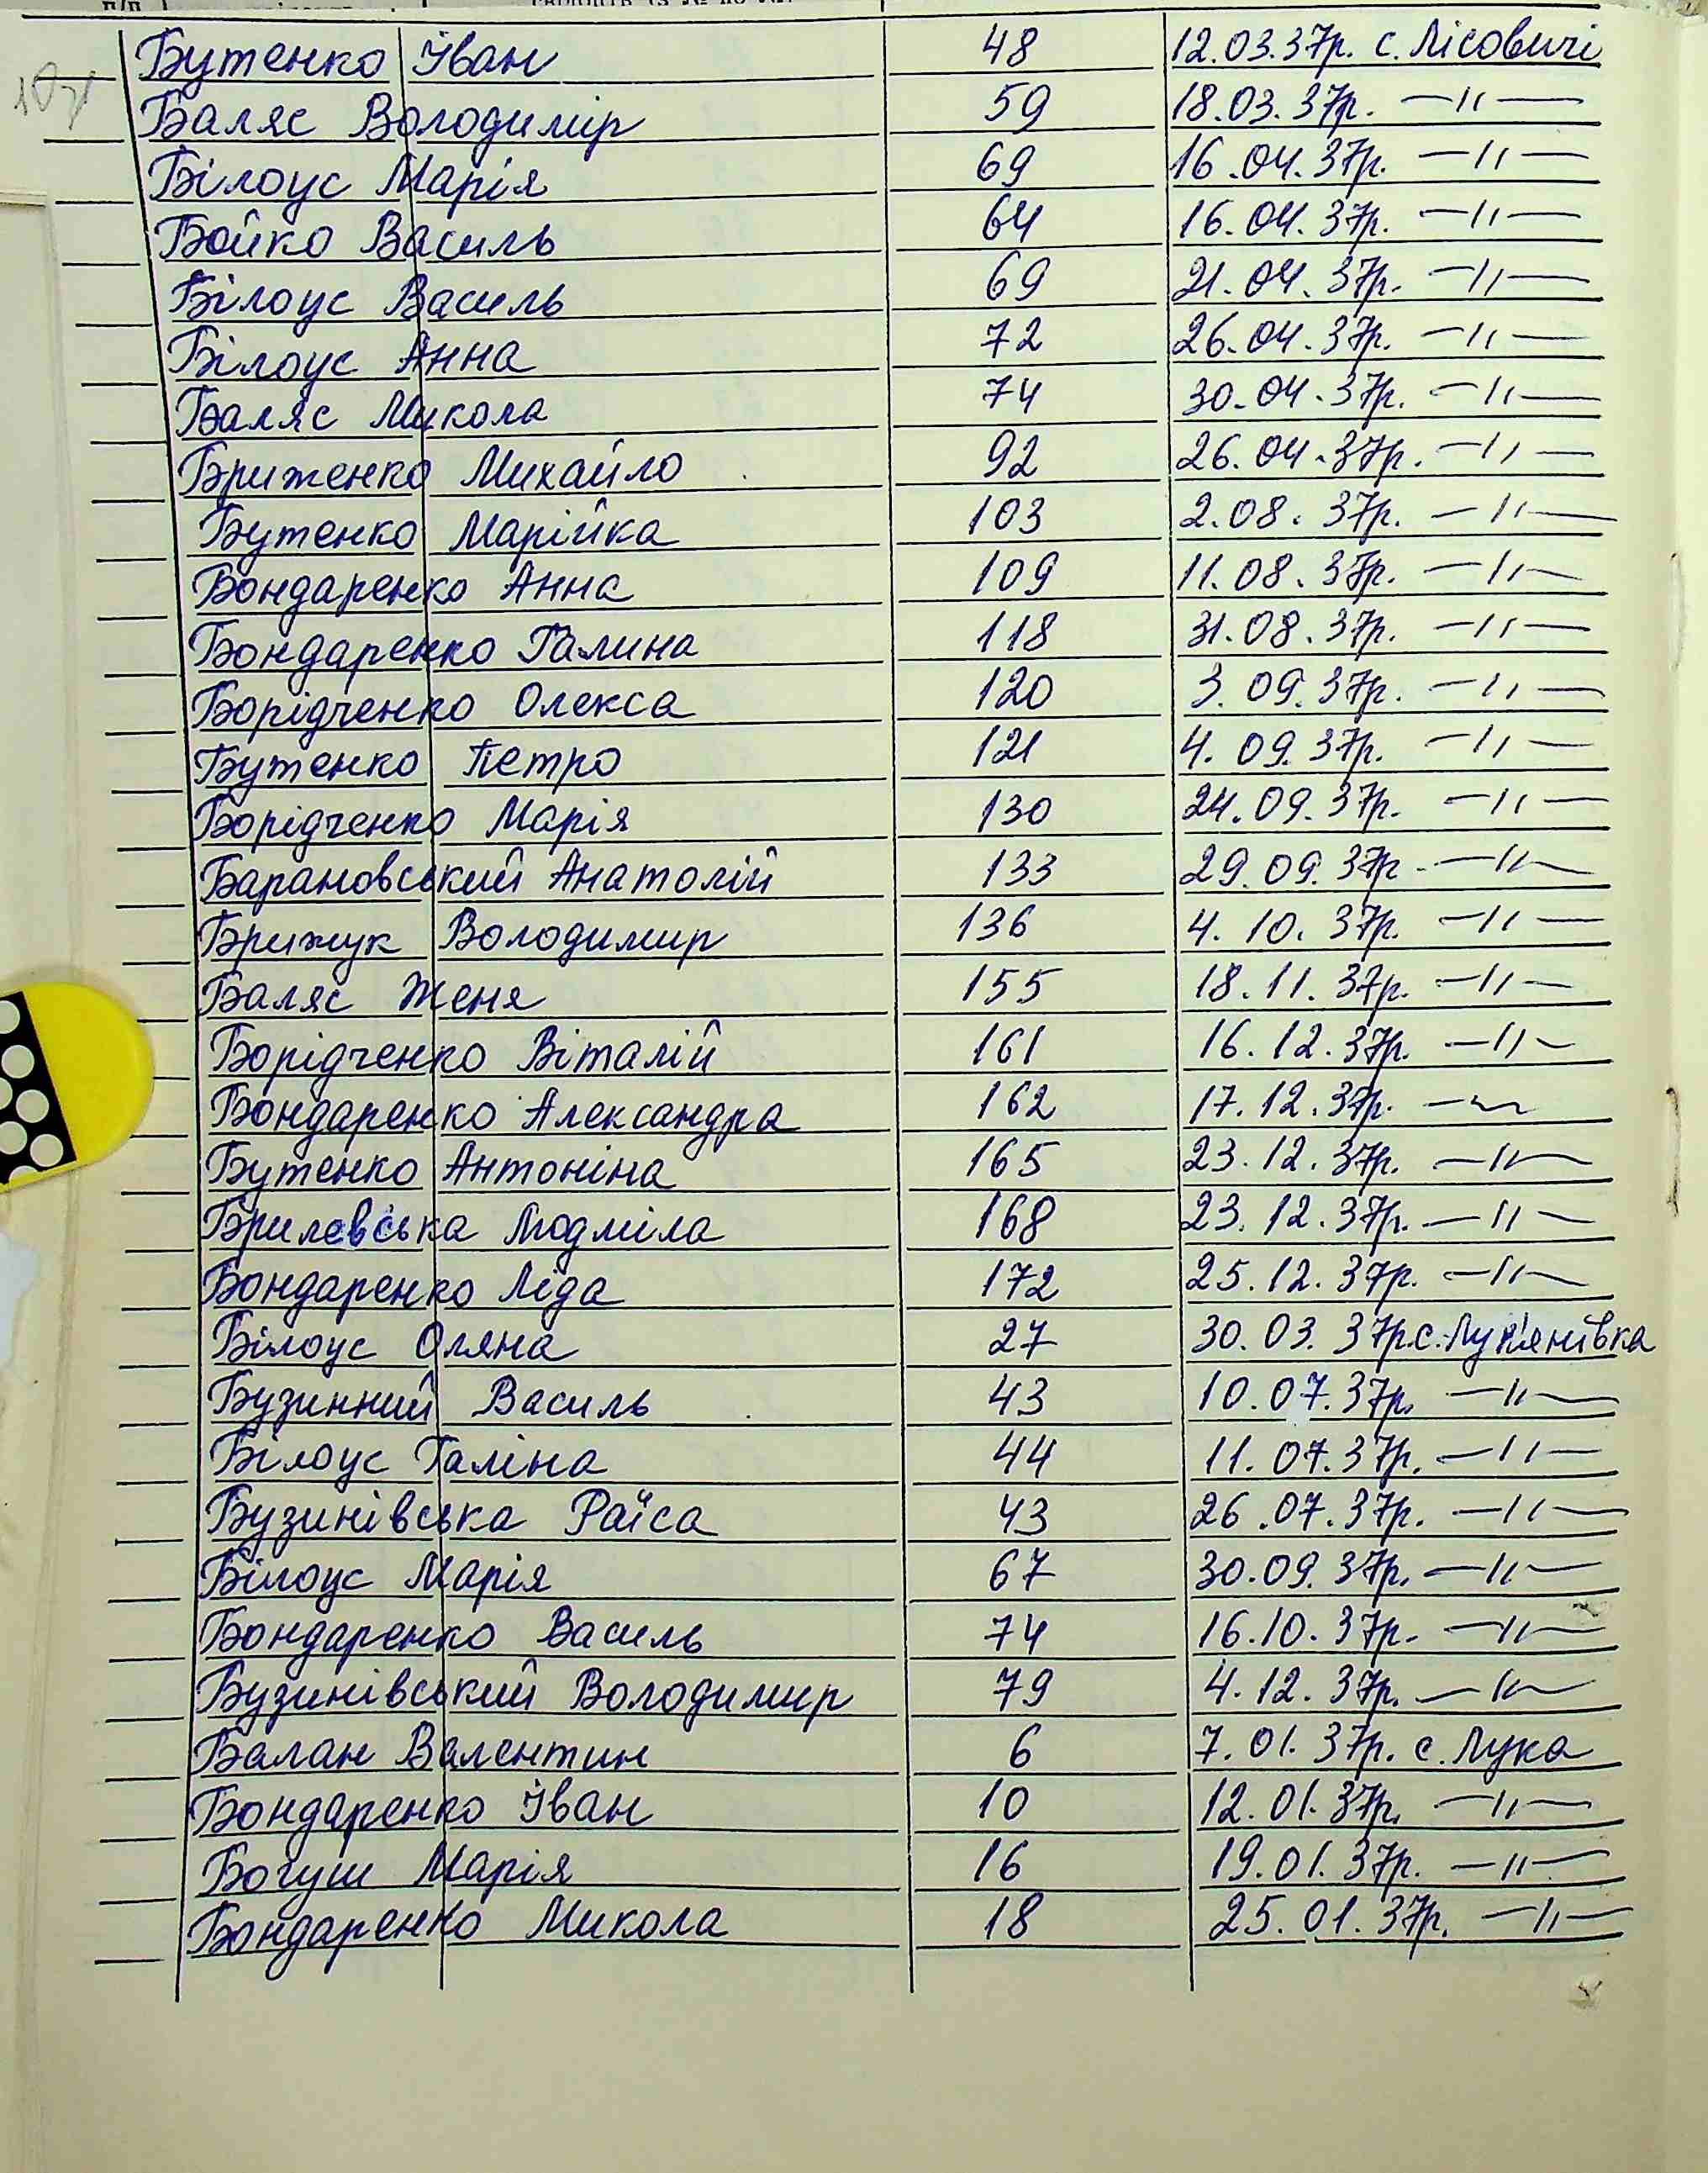 п/п
Бутенко Іван 48 12.03.37р. с. Лісовичі
Баляс Володимір 59 18.03.37р. —〃—
Білоус Марія 69 16.04.37р. —〃—
Бойко Василь 64 16.04.37р. —〃—
Білоус Василь 69 21.04.37р. —〃—
Білоус Анна 72 26.04.37р. —〃—
Баляс Микола 74 30.04.37р. —〃—
Бриженко Михайло 92 26.04.37р. —〃—
Бутенко Марійка 103 2.08.37р. —〃—
Бондаренко Анна 109 11.08.37р. —〃—
Бондаренко Галина 118 31.08.37р. —〃—
Борідченко Олекса 120 3.09.37р. —〃—
Бутенко Петро 121 4.09.37р. —〃—
Борідченко Марія 130 24.09.37р. —〃—
Барановський Анатолій 133 29.09.37р. —〃—
Брижук Володимир 136 4.10.37р. —〃—
Баляс Женя 155 18.11.37р. —〃—
Борідченко Віталій 161 16.12.37р. —〃—
Бондаренко Александра 162 17.12.37р. —〃—
Бутенко Антоніна 165 23.12.37р. —〃—
Брилевська Людміла 168 23.12.37р. —〃—
Бондаренко Ліда 172 25.12.37р. —〃—
Білоус Оляна 27 30.03.37р. с. Лук'янівка
Бузинний Василь 43 10.07.37р. —〃—
Білоус Галіна 44 11.07.37р. —〃—
Бузинівська Раїса 43 26.07.37р. —〃—
Білоус Марія 67 30.09.37р. —〃—
Бондаренко Василь 74 16.10.37р. —〃—
Бузинівський Володимир 79 4.12.37р. —〃—
Балан Валентин 6 7.01.37р. с. Лука
Бондаренко Іван 10 12.01.37р. —〃—
Богуш Марія 16 19.01.37р. —〃—
Бондаренко Микола 18 25.01.37р. —〃—